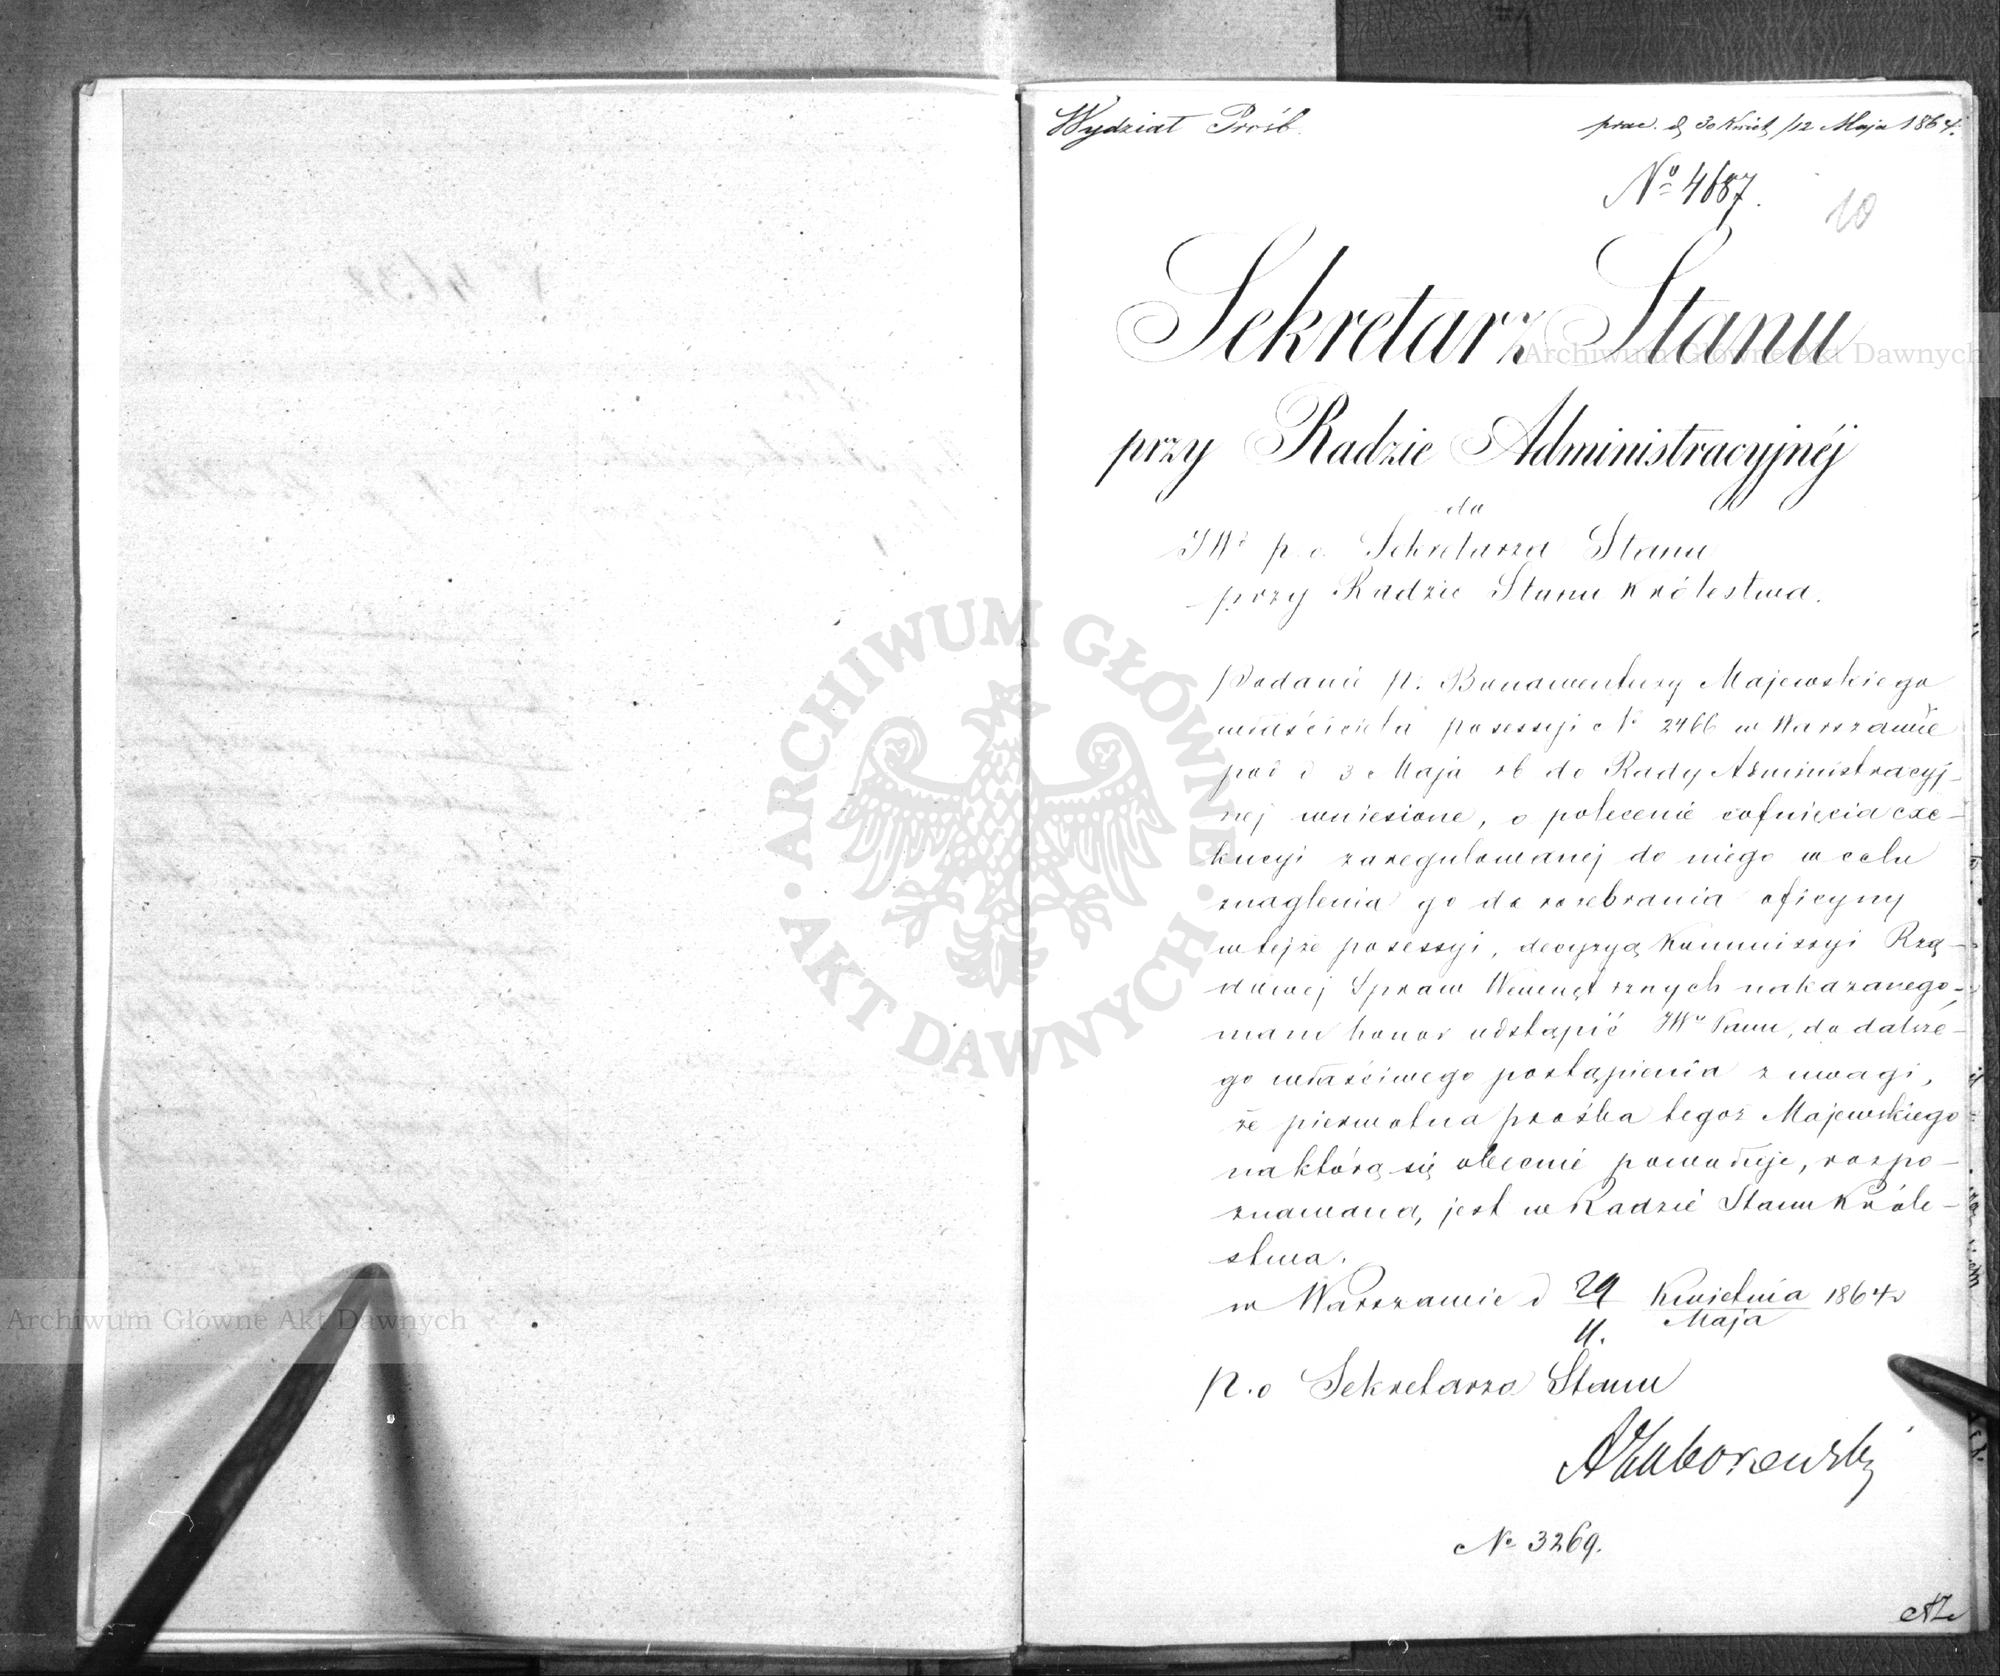 Wydział Próśb.
prac. d. 30 Kwiet /12 Maja 1864.
No 4687.
10
Sekretarz Stanu
przy Radzie Administracyjnéj
do
JWo p.o. Sekretarza Stanu
przy Radzie Stanu Królestwa.
Podanie p. Bonawentury Majewskiego
właściciela posessyi No 2466 w Warszawie
pod d 3 Maja rb do Rady Administracyj-
nej wniesione, o polecenie cofnięcia exe-
kucyi zaregulowanej do niego w celu
znaglenia go do rozebrania oficyny
w tejże posessyi, decyzyą Kommissyi Rzą-
dowej Spraw Wewnętrznych nakazanego,
mam honor odstąpić JWu Panu, do dalsze-
go właściwego postąpienia z uwagi,
że pierwotna prośba tegoż Majewskiego
na którą się obecnie powołuje, rozpo-
znawana, jest w Radzie Stanu Króle-
stwa.
w Warszawie d 29/11. Kwietnia/Maja 1864 r
p.o Sekretarza Stanu
AZaborowski
No 3269.
AZ
ARCHIWUM GŁÓWNE · AKT DAWNYCH ·
Archiwum Główne Akt Dawnych
Archiwum Główne Akt Dawnych